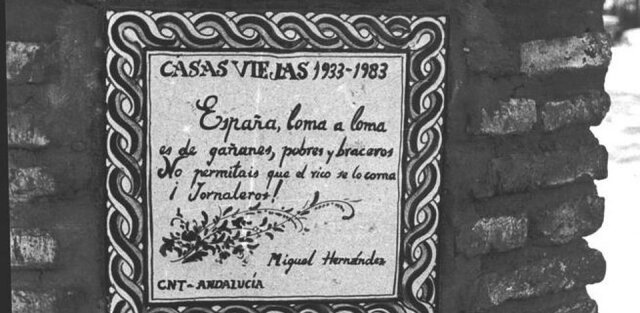 CASAS VIEJAS 1933-1983
España, loma a loma
es de gañanes, pobres y braceros
No permitais que el rico se lo coma
¡Jornaleros!
Miguel Hernández
CNT-ANDALUCÍA